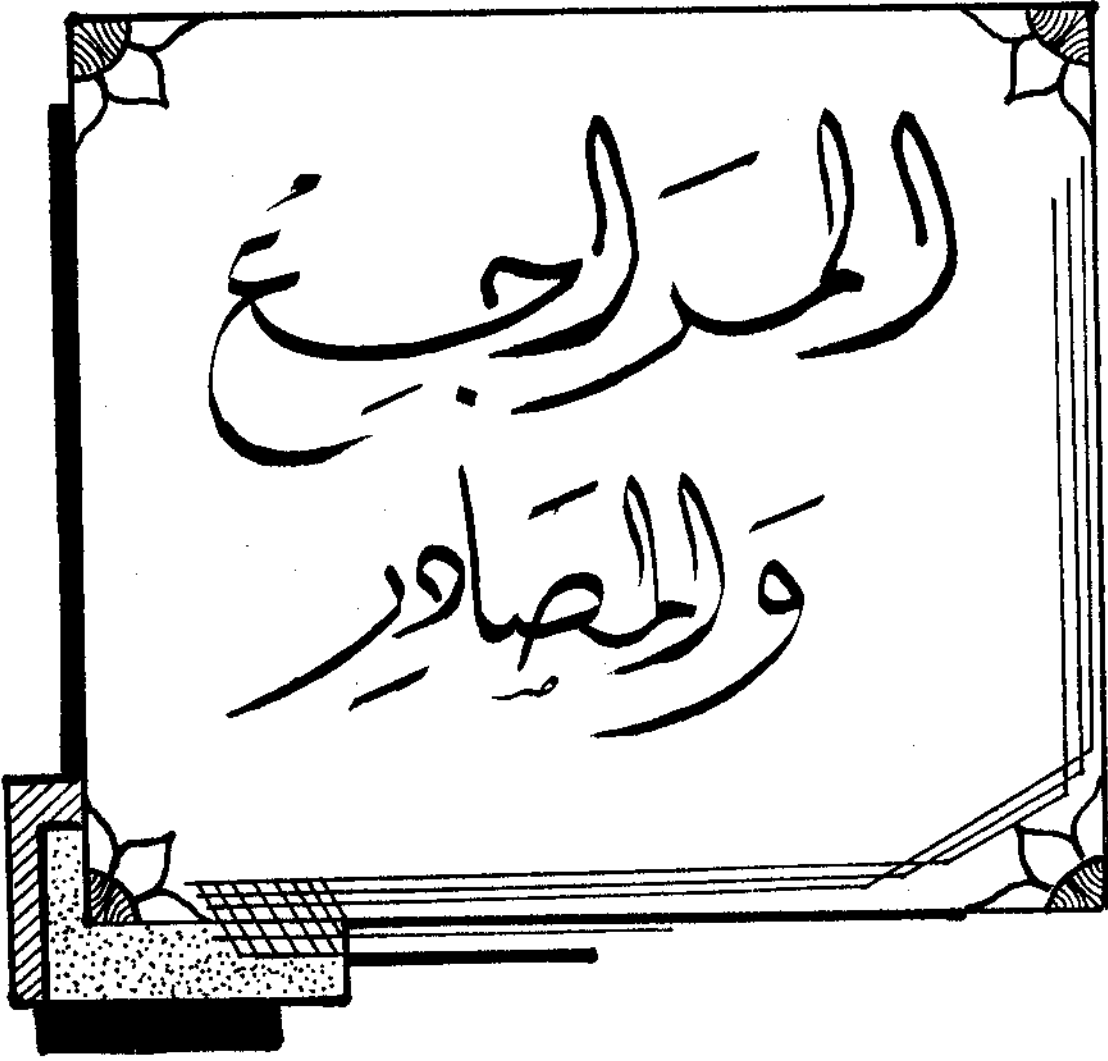 المَراجِعُ
وَالمَصَادِر